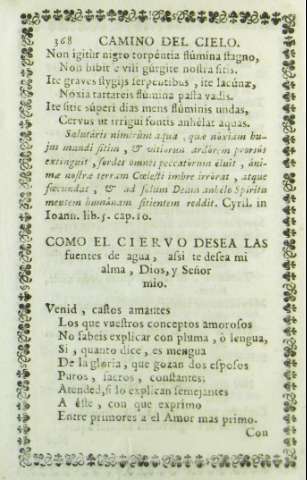 368 CAMINO DEL CIELO.
Non igitur nigro torpéntia flúmina stagno,
Non bibit è vili gúrgite nostra sitis.
Ite graves stygijs serpentibus, ite lacúnæ,
Noxia tartarei flumina passa vadis.
Ite sitit súperi dias mens flúminis undas,
Cervus ut irrigui fontis anhélat aquas.
Salutáris nimirùm aqua, quæ nóxiam hu-
jus mundi sitim, & vitiorum ardórem prorsùs
extinguit, sordes omnes peccatórum eluit, áni-
mæ nostræ terram Cœlesti imbre irrórat, atque
fœcundat, & ad solum Deum anhelo Spíritu
mentem humánam sitientem reddit. Cyril. in
Ioann. lib. 5. cap. 10.
COMO EL CIERVO DESEA LAS
fuentes de agua, assi te desea mi
alma, Dios, y Señor
mio.
Venid, castos amantes
Los que vuestros conceptos amorosos
No sabeis explicar con pluma, ò lengua,
Si, quanto dice, es mengua
De la gloria, que gozan dos esposos
Puros, sacros, constantes;
Atended, si lo explican semejantes
A éste, con que exprimo
Entre primores a el Amor mas primo.
Con